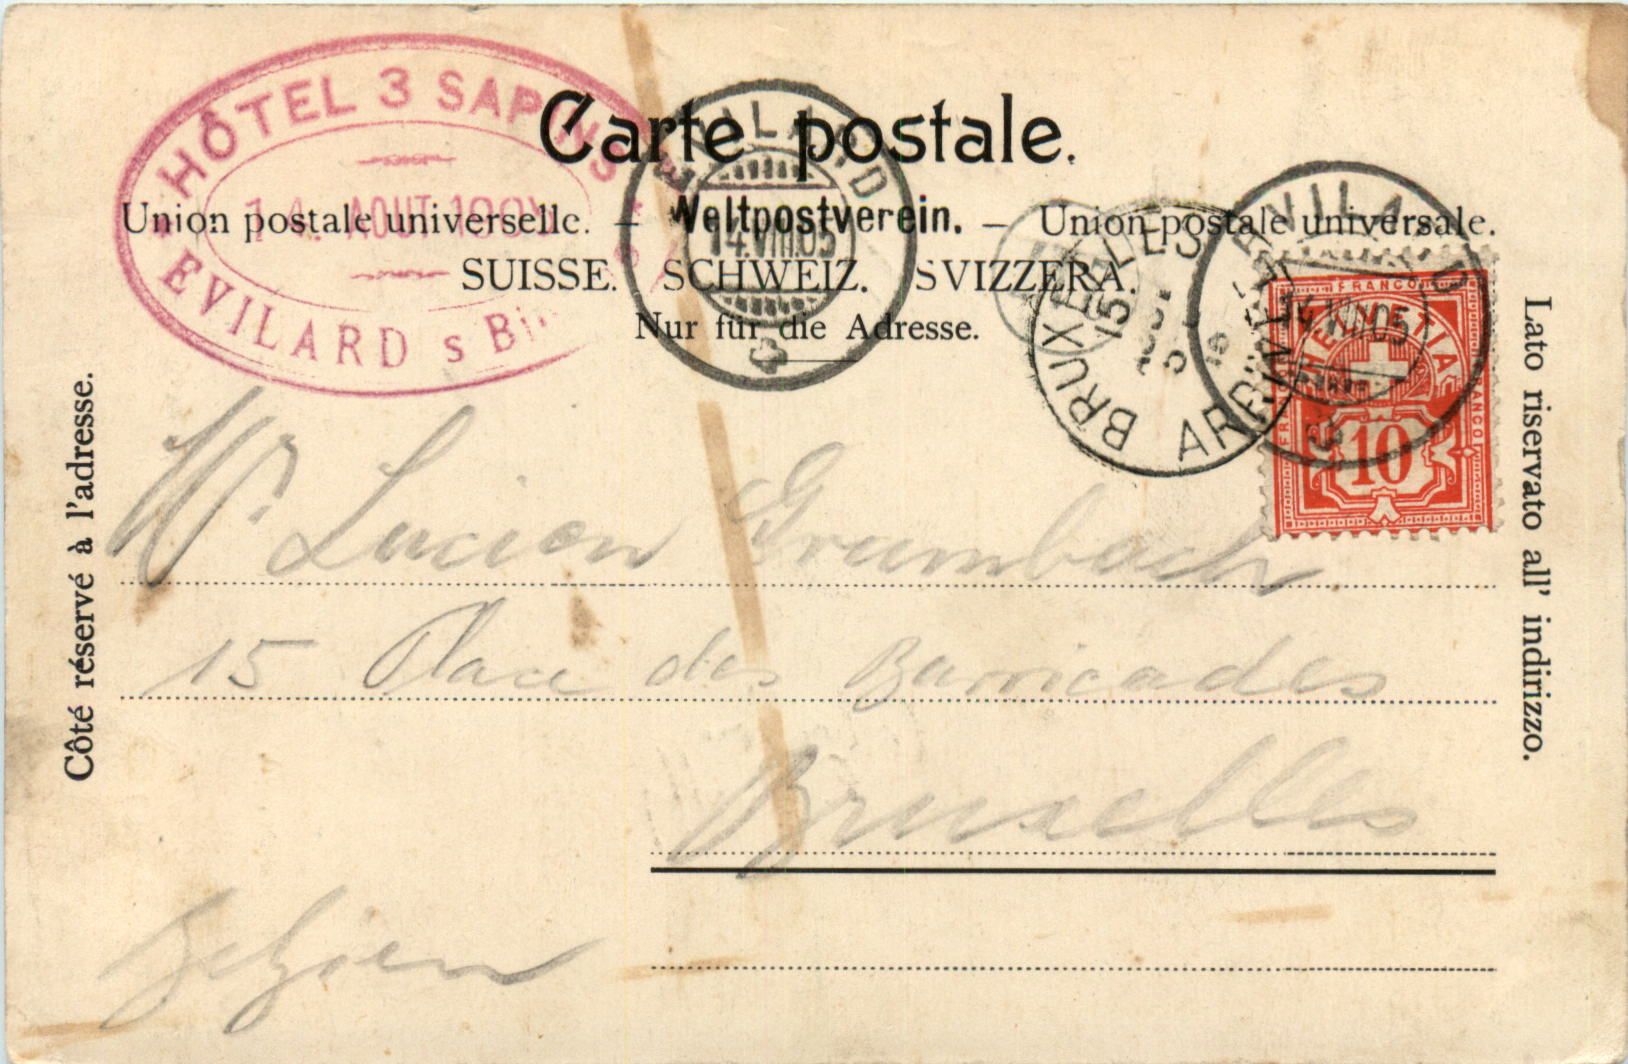 HÔTEL 3 SAPINS
14. AOUT
EVILARD s Bi
Carte postale.
EVILARD
14.VIII.05
Union postale universelle. — Weltpostverein. — Union postale universale.
SUISSE. SCHWEIZ. SVIZZERA.
Nur für die Adresse.
BRUXELLES
15
ARRIVÉE
EVILARD
14.VIII.05
FRANCO
HELVETIA
FRANCO
FRANCO
10
Côté réservé à l'adresse.
Lato riservato all' indirizzo.
Mr Lucien Grumbach
15 Place des Barricades
Bruxelles
Belgien